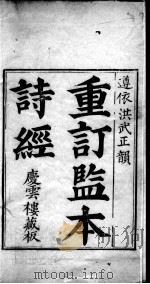 遵依洪武正韻
重訂監本
詩經
慶雲樓藏板
http://mtoou.info/